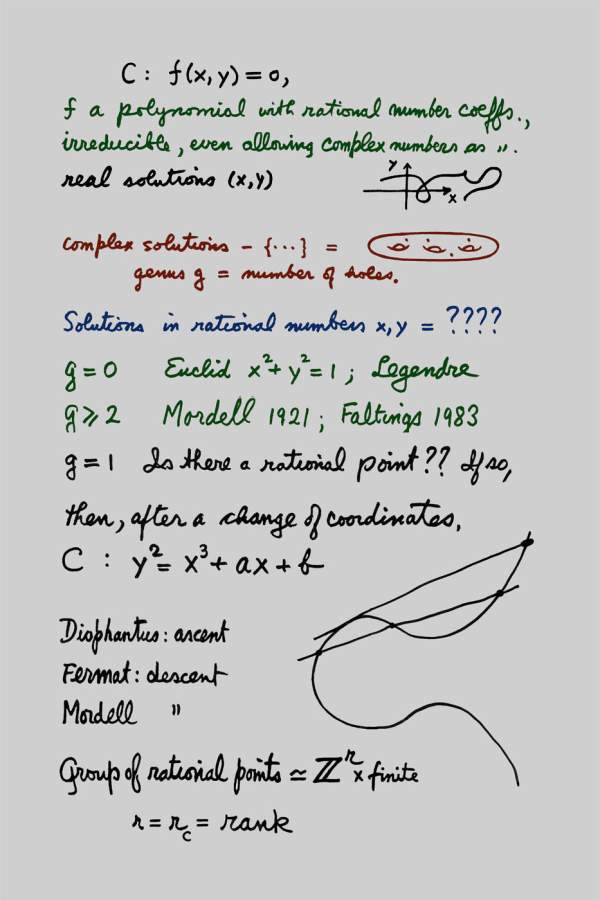 C: f(x,y) = 0,
f a polynomial with rational number coeffs.,
irreducible, even allowing complex numbers as ".
real solutions (x,y)
y
x
complex solutions - {...} =
genus g = number of holes.
Solutions in rational numbers x,y = ????
g = 0 Euclid x² + y² = 1 ; Legendre
g ⩾ 2 Mordell 1921 ; Faltings 1983
g = 1 Is there a rational point?? If so,
then, after a change of coordinates,
C : y² = x³ + ax + b
Diophantus: ascent
Fermat: descent
Mordell "
Group of rational points ≃ ℤʳ × finite
r = r_C = rank